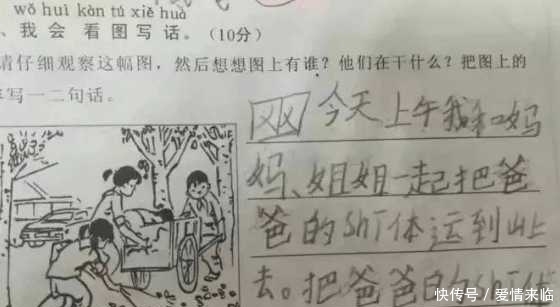 wǒ huì kàn tú xiě huà
、我 会 看图写话。(10分)
请仔细观察这幅图，然后想想图上有谁？他们在干什么？把图上的
写一二句话。
今天上午我和妈
妈、姐姐一起把爸
爸的ShT体运到山上
去。把爸爸的ShT体
快传号/爱情来临